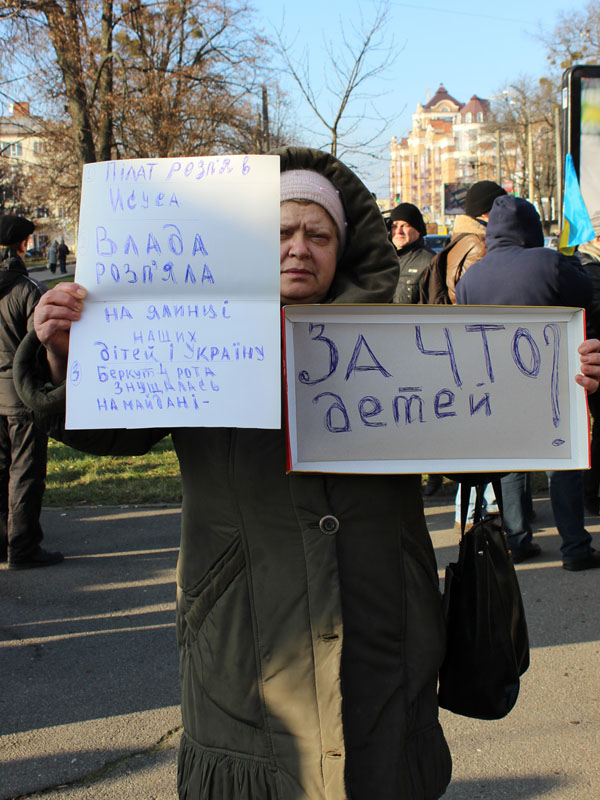 Пілат розп'яв
Исуса
Влада
розп'яла
на ялинці
наших
дітей і Україну
③ Беркут 4 рота
знущалась
на майдані -
За что
детей ?